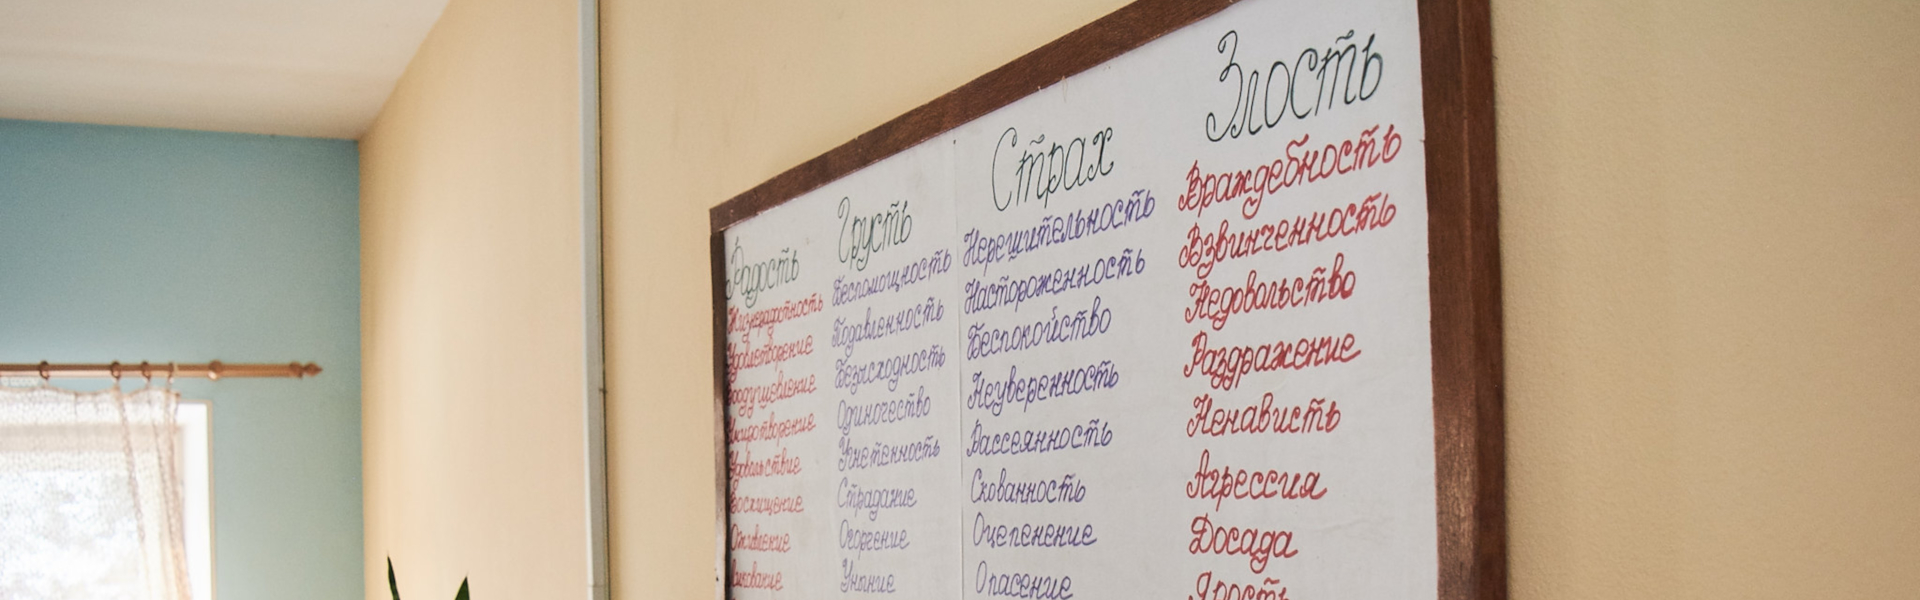 Радость
Жизнерадостность
Удовлетворение
Воодушевление
Умиротворение
Удовольствие
Восхищение
Оживление
Ликование
Грусть
Беспомощность
Подавленность
Безысходность
Одиночество
Угнетенность
Страдание
Огорчение
Уныние
Страх
Нерешительность
Настороженность
Беспокойство
Неуверенность
Рассеянность
Скованность
Оцепенение
Опасение
Злость
Враждебность
Взвинченность
Недовольство
Раздражение
Ненависть
Агрессия
Досада
Ярость